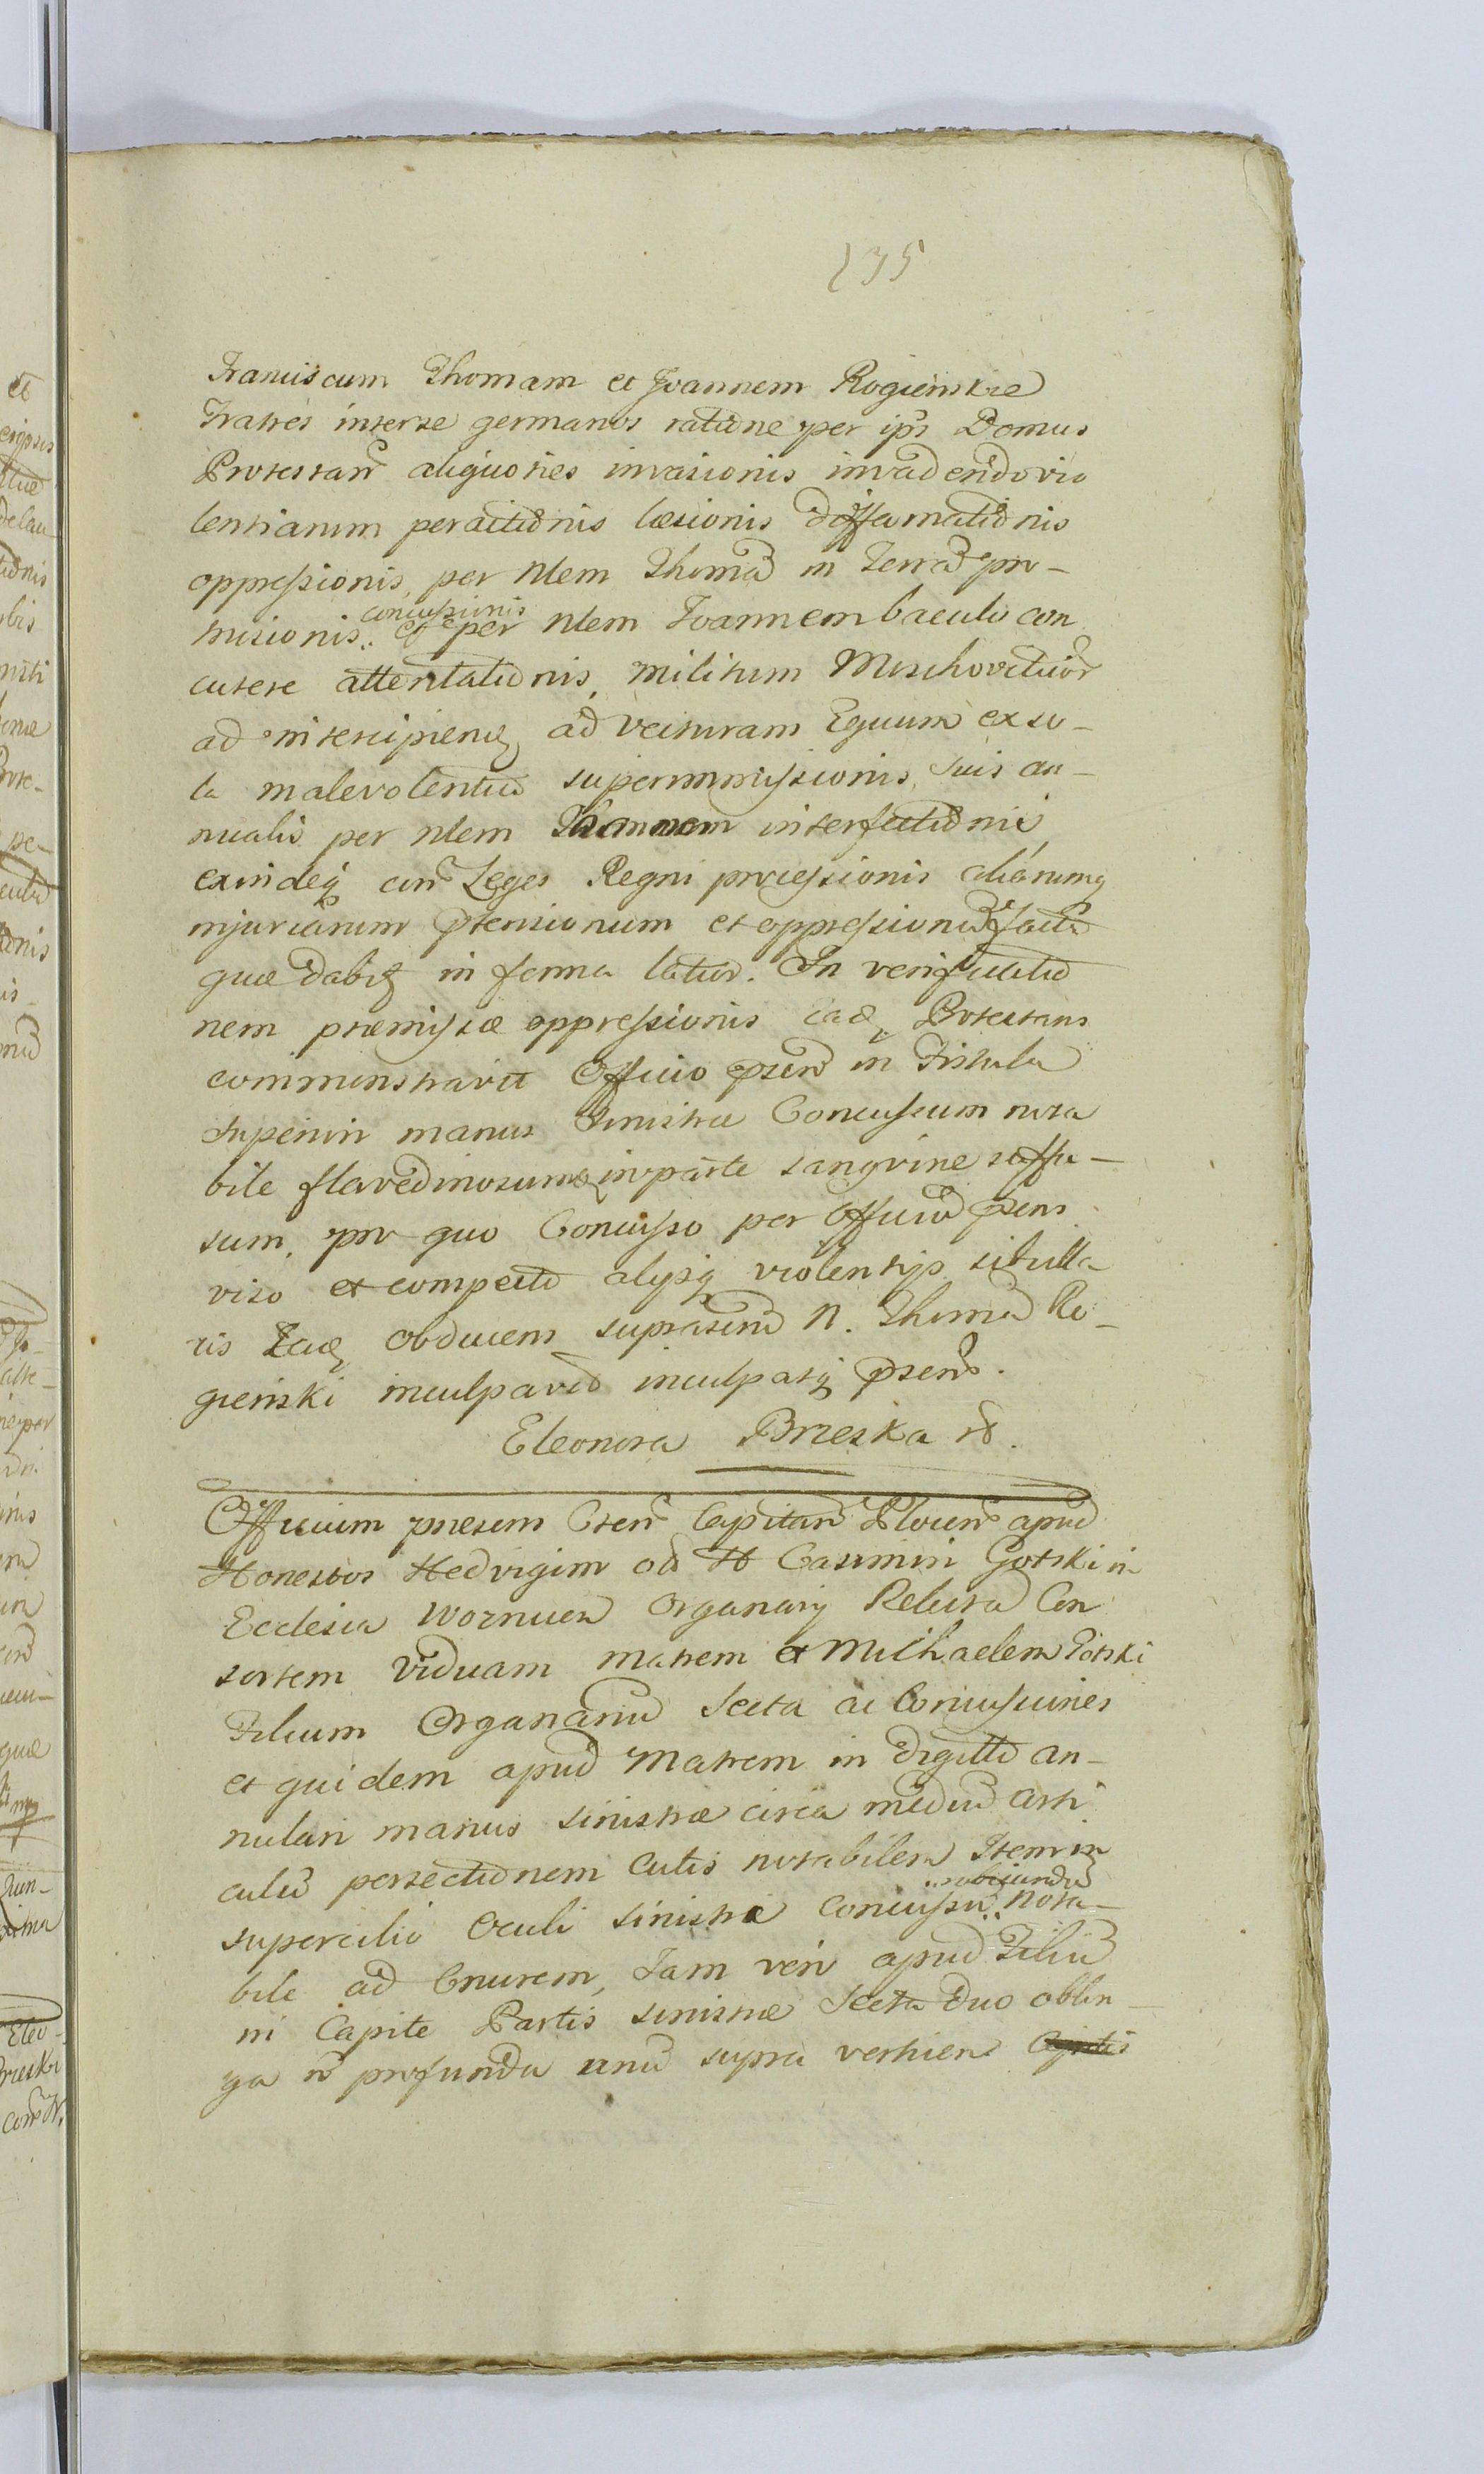 235
Franciscum Thomam et Joannem Rogienskie
Fratres interse germanos ratione per ips Domus
Protestan aliquoties invasionis invadendo vio
lentiarum peractionis læsionis diffamationis
oppressionis, per Nlem Thomã in Terrã pro-
concussionis
trusionis et per Nlem Joannem baculo con
cutere attentationis, militum Moschovitićor
ad intercipienđ ad vecturam Equum ex so-
la malevolentia superimmissionis, suis an-
nualis per Nlem interfectionis
exindeq con Leges Regni processionis aliarumq
injuriarum ptensionum et oppressionũ factã
quæ dabit in forma latior. In verificatio
nem præmissæ oppressionis Ead Protestans
comminstravit Officio psen in Fistula
superiori manus sinistræ Concussum nota
bile flavedinosum in parte sangvine suffu-
sum, pro quo Concusso per Officiũ psens
viso et compecto alysq violentijs titulla
ris Ead obducens suprascnũ N. Thomã Ro-
gienski inculpavit inculpatq psens.
Eleonora Brzeska
Officium præsens Cten Capitan Plocen apud
Honestos Hedvigim od H Casimiri Gotski in
Ecclesia Woznicen Organarij Relicta Con
sortem Viduam matrem et Michaelem Gotski
Filium Organariũ Secta ac Concussiones
et quidem apud Matrem in digitto an-
nulari manus sinistræ circa mediũ arti
culũ persectionem Cutis notabilem Item in
rubicundũ
supercilio Oculi sinistri Concussũ nota-
bile ad Cruorem, Jam vero apud Filiũ
in Capite Partis sinistræ Secta duo oblon
ga ñ profunda unũ supra verticem Capitis